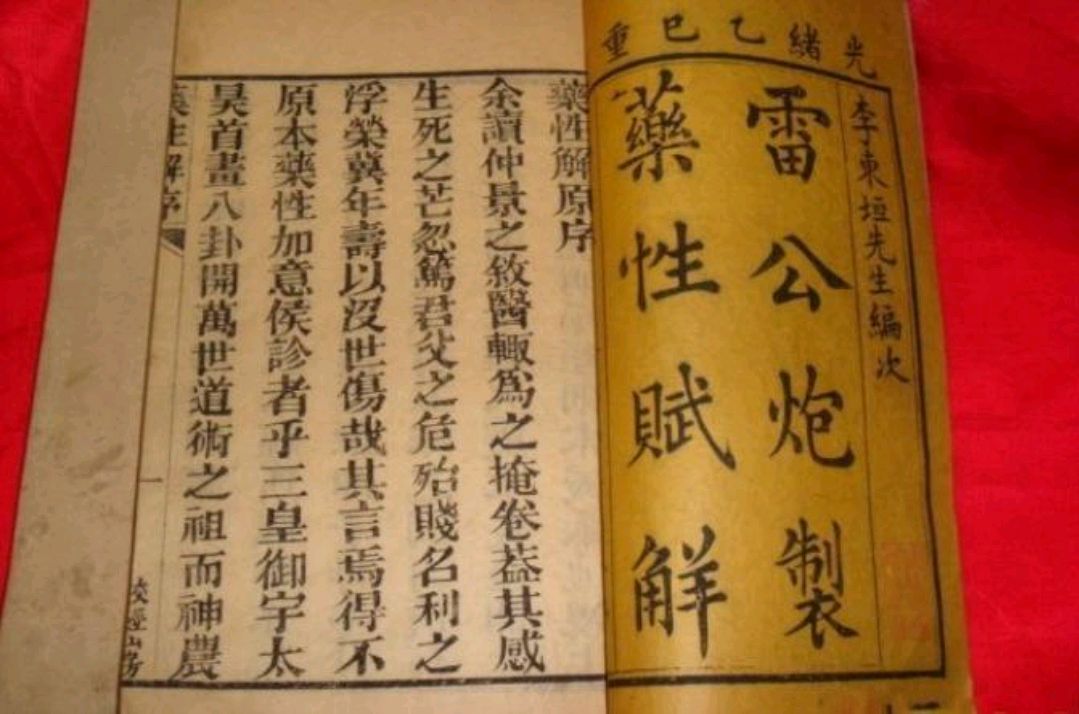 光緒乙巳重
李東垣先生編次
雷公炮製
藥性賦解
藥性解原序
余讀仲景之敘醫輙爲之掩卷葢其感
生死之芒忽篤君父之危殆賤名利之
浮榮冀年壽以沒世傷哉其言焉得不
原本藥性加意侯診者乎三皇御宇太
昊首畫八卦開萬世道術之祖而神農
藥性解序
一
山房